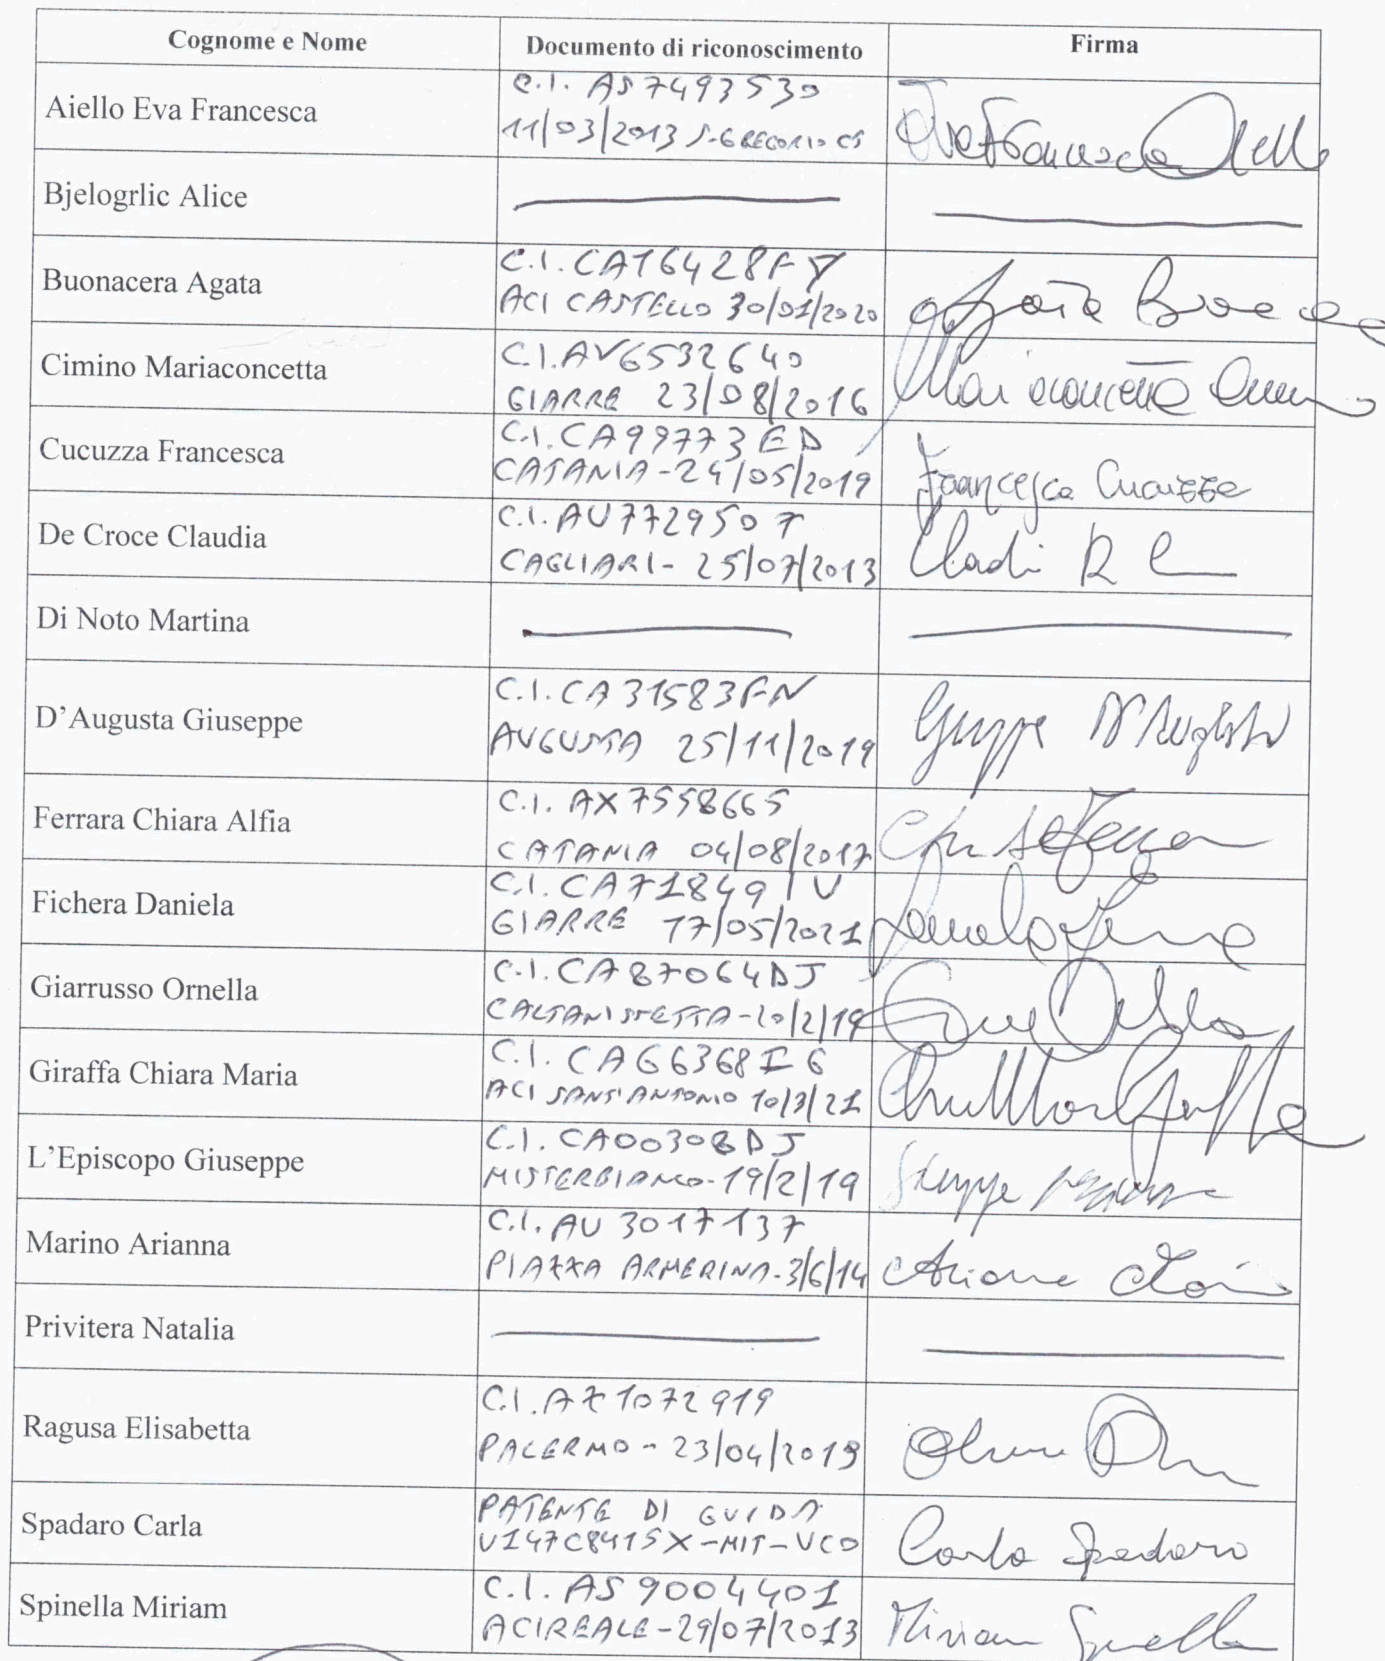 Cognome e Nome Documento di riconoscimento Firma
Aiello Eva Francesca
C.I. AS7493530
11/03/2013 S. GREGORIO CT
Eva Francesca Aiello
Bjelogrlic Alice
Buonacera Agata
ACI CASTELLO 30/01/2020
Agata
Cimino Mariaconcetta
C.I. AV6532640
GIARRE 23/08/2016
Mariaconcetta
Cucuzza Francesca
C.I. CA99773ED
CATANIA - 24/05/2019
Francesca Cucuzza
De Croce Claudia
C.I. AU7729507
CAGLIARI - 25/07/2013
Di Noto Martina
D'Augusta Giuseppe
C.I. CA31583FN
AUGUSTA 25/11/2019
Giuseppe D'Augusta
Ferrara Chiara Alfia
C.I. AX7558665
CATANIA 04/08/2017
Fichera Daniela
C.I. CA71849IV
GIARRE 17/05/2021
Giarrusso Ornella
C.I. CA87064DJ
CALTANISSETTA - 20/2/19
Giraffa Chiara Maria
C.I. CA66368IG
ACI SANT'ANTONIO 10/3/21
L'Episcopo Giuseppe
C.I. CA00308DJ
MISTERBIANCO - 19/2/19
Giuseppe
Marino Arianna
C.I. AU 3017137
PIAZZA ARMERINA - 3/6/14
Arianna
Privitera Natalia
Ragusa Elisabetta
C.I. 1072919
PALERMO - 23/04/2019
Spadaro Carla
PATENTE DI GUIDA
U147C8415X - MIT - UCO
Carla Spadaro
Spinella Miriam
C.I. AS 9004401
ACIREALE - 29/07/2013
Miriam Spinella